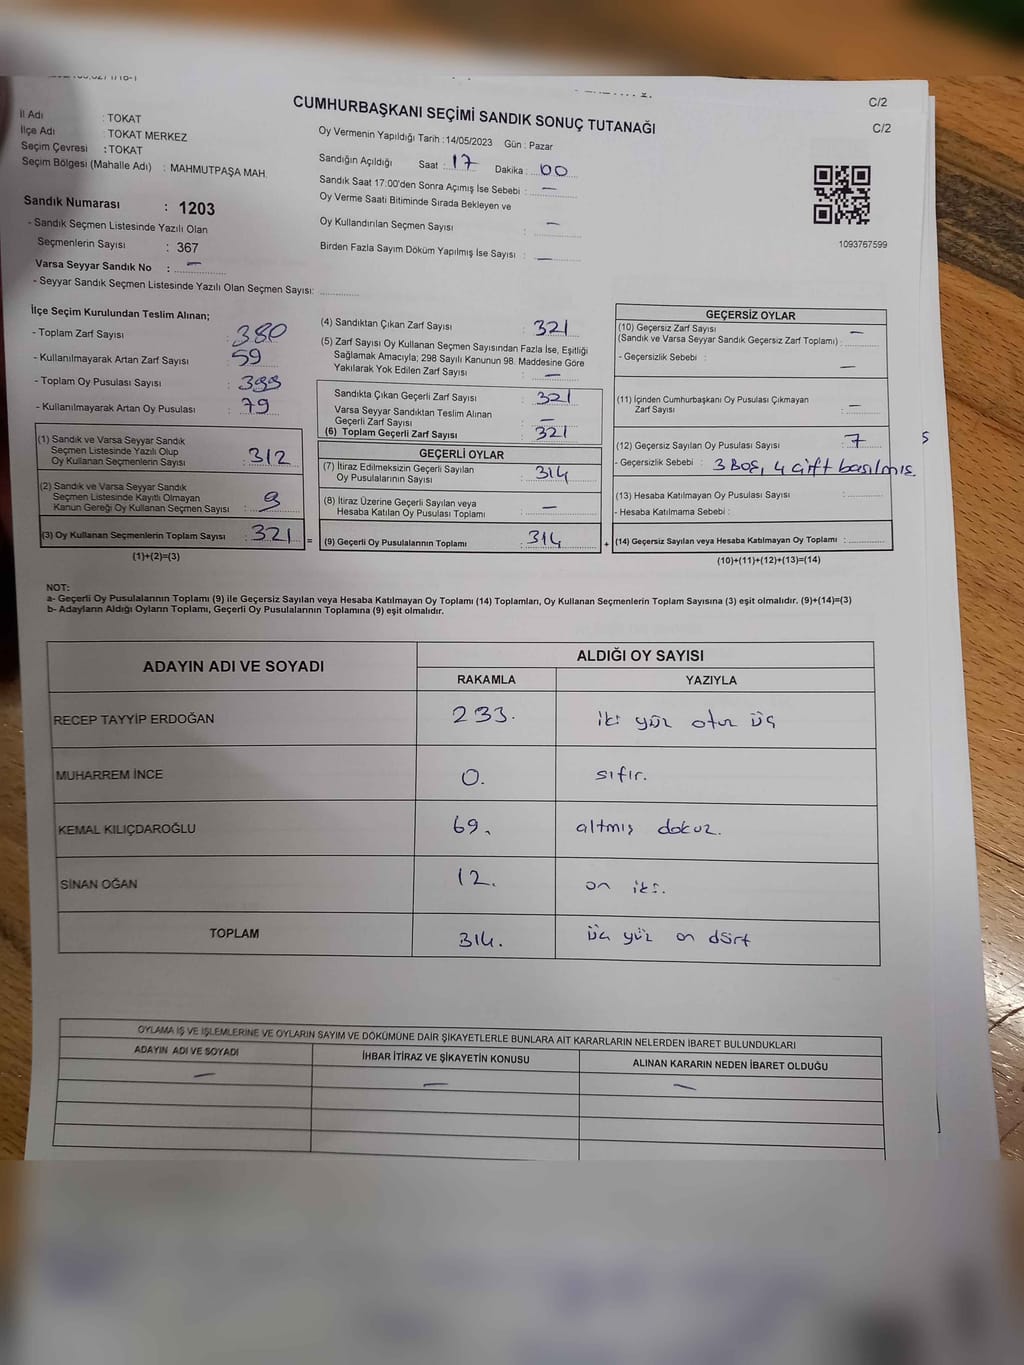 C/2
CUMHURBAŞKANI SEÇİMİ SANDIK SONUÇ TUTANAĞI
C/2
İl Adı : TOKAT
İlçe Adı : TOKAT MERKEZ
Seçim Çevresi : TOKAT
Seçim Bölgesi (Mahalle Adı) : MAHMUTPAŞA MAH.
Oy Vermenin Yapıldığı Tarih : 14/05/2023 Gün : Pazar
Sandığın Açıldığı Saat : 17 Dakika : 00
Sandık Saat 17:00'den Sonra Açımış İse Sebebi : —
Oy Verme Saati Bitiminde Sırada Bekleyen ve
Oy Kullandırılan Seçmen Sayısı : —
Birden Fazla Sayım Döküm Yapılmış İse Sayısı : —
1093767599
Sandık Numarası : 1203
- Sandık Seçmen Listesinde Yazılı Olan
Seçmenlerin Sayısı : 367
Varsa Seyyar Sandık No : —
- Seyyar Sandık Seçmen Listesinde Yazılı Olan Seçmen Sayısı:
İlçe Seçim Kurulundan Teslim Alınan;
- Toplam Zarf Sayısı : 380
- Kullanılmayarak Artan Zarf Sayısı : 59
- Toplam Oy Pusulası Sayısı :
- Kullanılmayarak Artan Oy Pusulası : 79
(1) Sandık ve Varsa Seyyar Sandık
Seçmen Listesinde Yazılı Olup
Oy Kullanan Seçmenlerin Sayısı : 312
(2) Sandık ve Varsa Seyyar Sandık
Seçmen Listesinde Kayıtlı Olmayan
Kanun Gereği Oy Kullanan Seçmen Sayısı : 9
(3) Oy Kullanan Seçmenlerin Toplam Sayısı : 321 =
(1)+(2)=(3)
(4) Sandıktan Çıkan Zarf Sayısı : 321
(5) Zarf Sayısı Oy Kullanan Seçmen Sayısından Fazla İse, Eşitliği
Sağlamak Amacıyla; 298 Sayılı Kanunun 98. Maddesine Göre
Yakılarak Yok Edilen Zarf Sayısı : —
Sandıkta Çıkan Geçerli Zarf Sayısı : 321
Varsa Seyyar Sandıktan Teslim Alınan
Geçerli Zarf Sayısı : —
(6) Toplam Geçerli Zarf Sayısı : 321
GEÇERLİ OYLAR
(7) İtiraz Edilmeksizin Geçerli Sayılan
Oy Pusulalarının Sayısı : 314
(8) İtiraz Üzerine Geçerli Sayılan veya
Hesaba Katılan Oy Pusulası Toplamı : —
(9) Geçerli Oy Pusulalarının Toplamı : 314 +
GEÇERSİZ OYLAR
(10) Geçersiz Zarf Sayısı —
(Sandık ve Varsa Seyyar Sandık Geçersiz Zarf Toplamı) :
- Geçersizlik Sebebi :
—
(11) İçinden Cumhurbaşkanı Oy Pusulası Çıkmayan
Zarf Sayısı : —
(12) Geçersiz Sayılan Oy Pusulası Sayısı : 7
- Geçersizlik Sebebi : 3 Boş, 4 çift basılmış
(13) Hesaba Katılmayan Oy Pusulası Sayısı :
- Hesaba Katılmama Sebebi :
(14) Geçersiz Sayılan veya Hesaba Katılmayan Oy Toplamı :
(10)+(11)+(12)+(13)=(14)
NOT:
a- Geçerli Oy Pusulalarının Toplamı (9) ile Geçersiz Sayılan veya Hesaba Katılmayan Oy Toplamı (14) Toplamları, Oy Kullanan Seçmenlerin Toplam Sayısına (3) eşit olmalıdır. (9)+(14)=(3)
b- Adayların Aldığı Oyların Toplamı, Geçerli Oy Pusulalarının Toplamına (9) eşit olmalıdır.
ADAYIN ADI VE SOYADI ALDIĞI OY SAYISI
RAKAMLA YAZIYLA
RECEP TAYYİP ERDOĞAN 233. iki yüz otuz üç
MUHARREM İNCE 0. sıfır.
KEMAL KILIÇDAROĞLU 69. altmış dokuz.
SİNAN OĞAN 12. on iki.
TOPLAM 314. üç yüz on dört
OYLAMA İŞ VE İŞLEMLERİNE VE OYLARIN SAYIM VE DÖKÜMÜNE DAİR ŞİKAYETLERLE BUNLARA AİT KARARLARIN NELERDEN İBARET BULUNDUKLARI
ADAYIN ADI VE SOYADI İHBAR İTİRAZ VE ŞİKAYETİN KONUSU ALINAN KARARIN NEDEN İBARET OLDUĞU
— — —